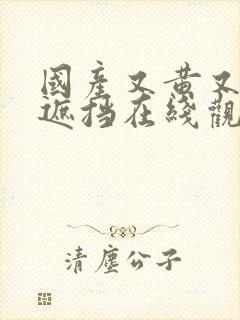 國產又黄又
遮挡在綫觀
清塵公子